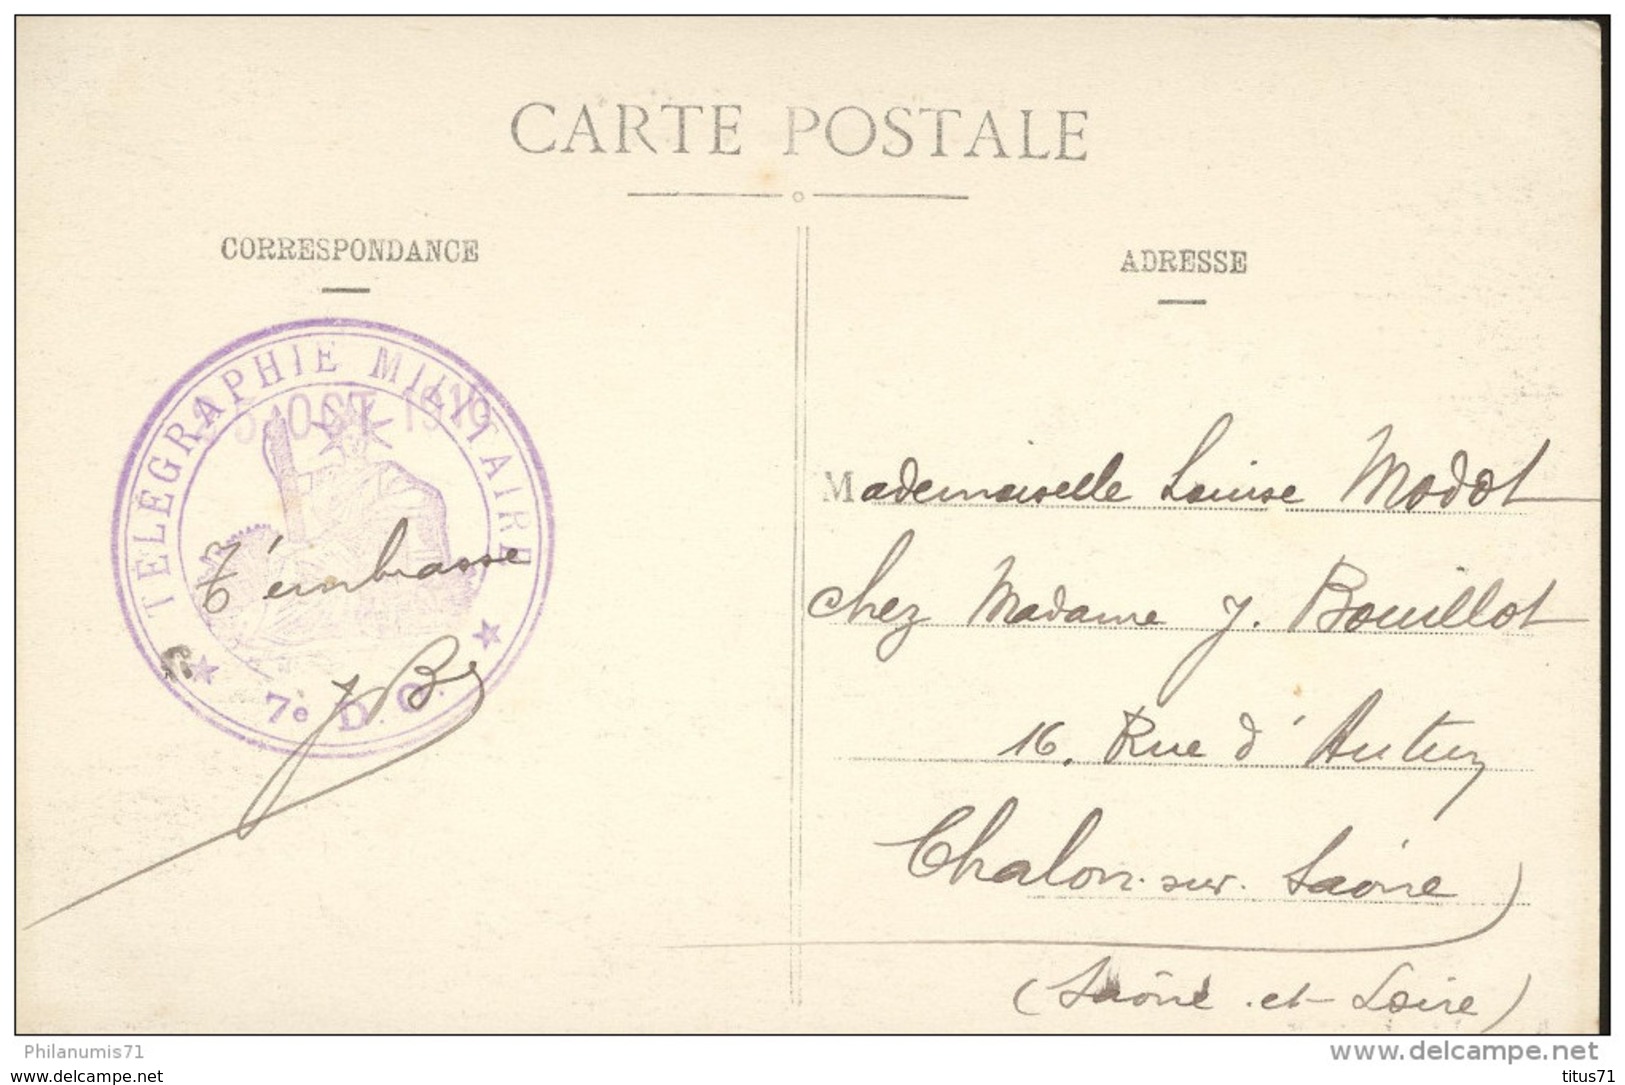 CARTE POSTALE
CORRESPONDANCE
ADRESSE
TÉLÉGRAPHIE MILITAIRE
OCT 1919
7e D.C.
T'embrasse
JB
Mademoiselle Louise Modot
chez Madame J. Bouillot
16, Rue d'Autun
Chalon-sur-Saône
(Saône-et-Loire)
Philanumis71
www.delcampe.net
karte postcard
titus71